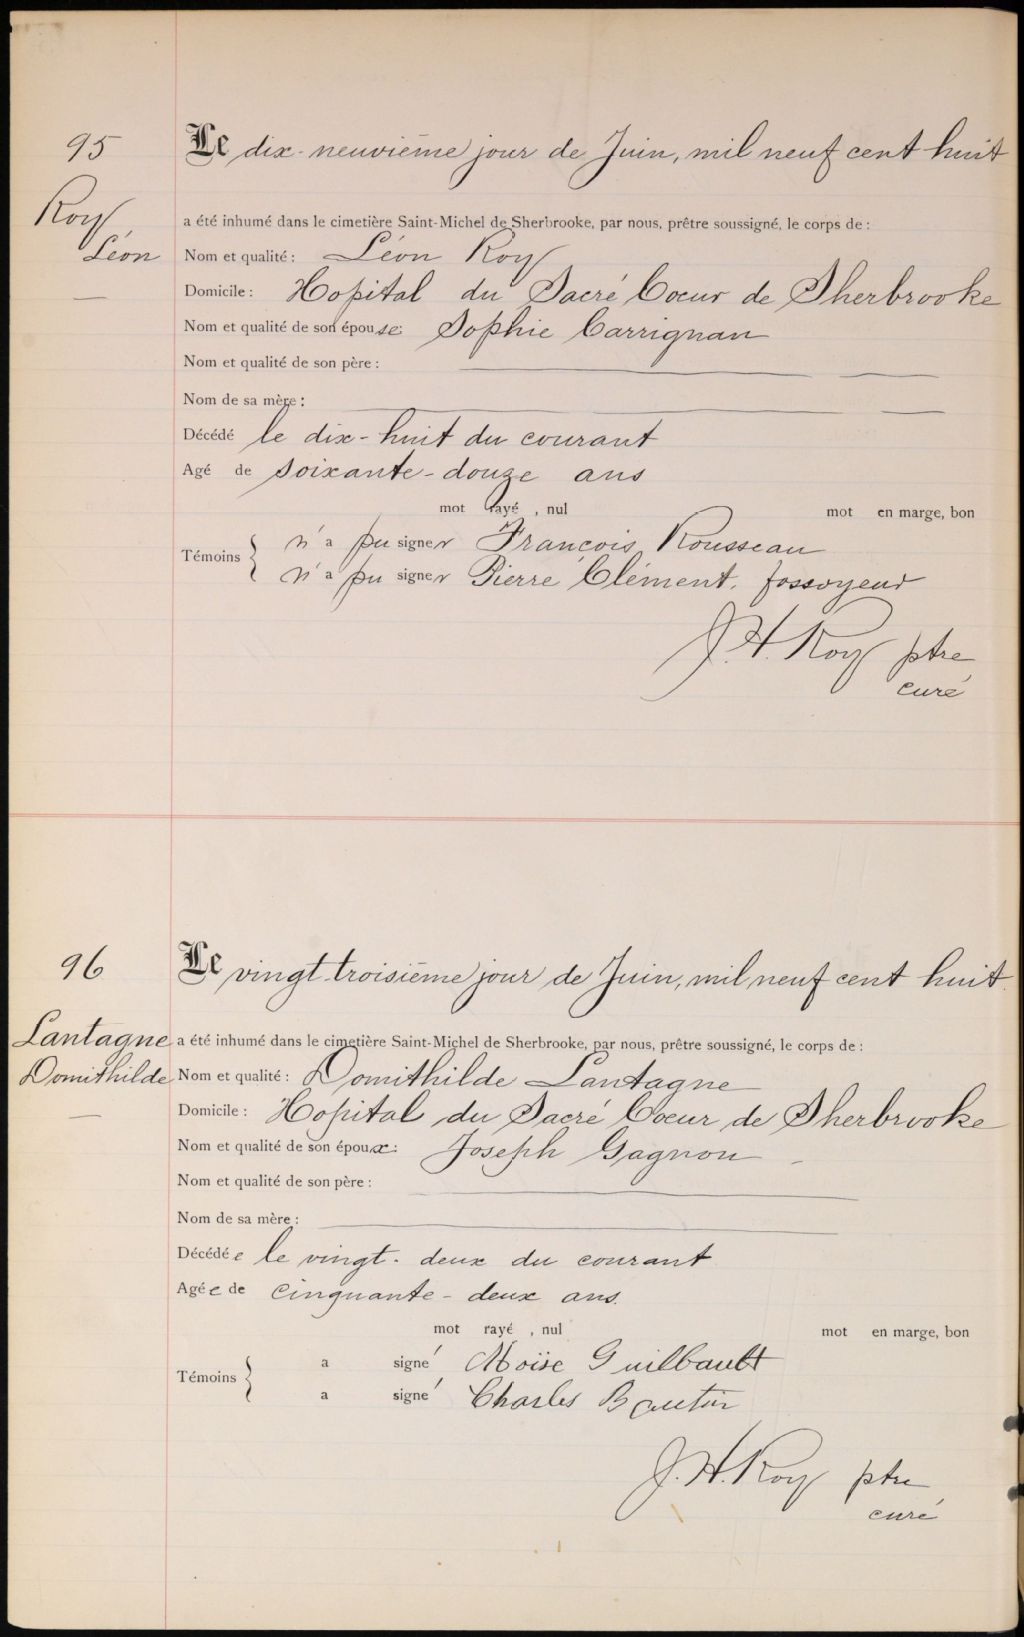 95
Le dix-neuvième jour de Juin, mil neuf cent huit
Roy
Léon
a été inhumé dans le cimetière Saint-Michel de Sherbrooke, par nous, prêtre soussigné, le corps de :
Nom et qualité : Léon Roy
Domicile : Hopital du Sacré Coeur de Sherbrooke
Nom et qualité de son épouse: Sophie Carrignan
Nom et qualité de son père :
Nom de sa mère :
Décédé le dix-huit du courant
Agé de soixante-douze ans
mot rayé , nul mot en marge, bon
Témoins n'a pu signer François Rousseau
n'a pu signer Pierre Clément, fossoyeur
J. H. Roy ptre
curé
96
Le vingt-troisième jour de Juin, mil neuf cent huit.
Lantagne
Domithilde
a été inhumé dans le cimetière Saint-Michel de Sherbrooke, par nous, prêtre soussigné, le corps de :
Nom et qualité : Domithilde Lantagne
Domicile : Hopital du Sacré Coeur de Sherbrooke
Nom et qualité de son époux: Joseph Gagnon
Nom et qualité de son père :
Nom de sa mère :
Décédée le vingt-deux du courant
Agée de cinquante-deux ans.
mot rayé , nul mot en marge, bon
Témoins a signé Moïse Guilbault
a signé Charles
J. H. Roy ptre
curé